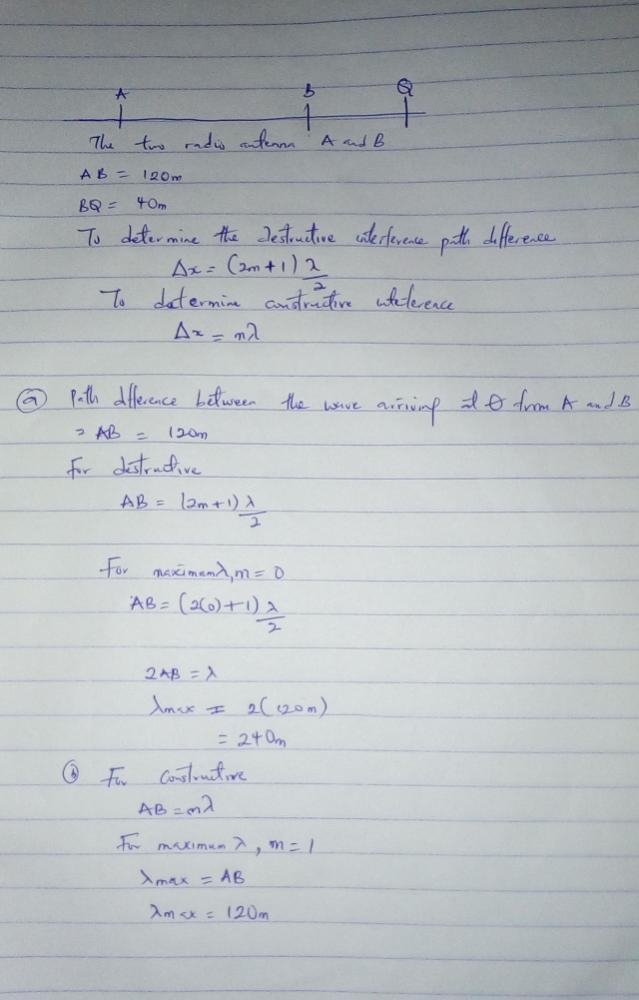 A B Q
The two radio antenna A and B
AB = 120m
BQ = 40m
To determine the destructive interference path difference
Δx = (2m+1) λ/2
To determine constructive inteference
Δx = mλ
(a) Path difference between the wave arriving at Q from A and B
= AB = 120m
For destructive
AB = (2m+1) λ/2
For maximum λ, m = 0
AB = (2(0)+1) λ/2
2AB = λ
λmax = 2(120m)
= 240m
(b) For constructive
AB = mλ
For maximum λ, m = 1
λmax = AB
λmax = 120m